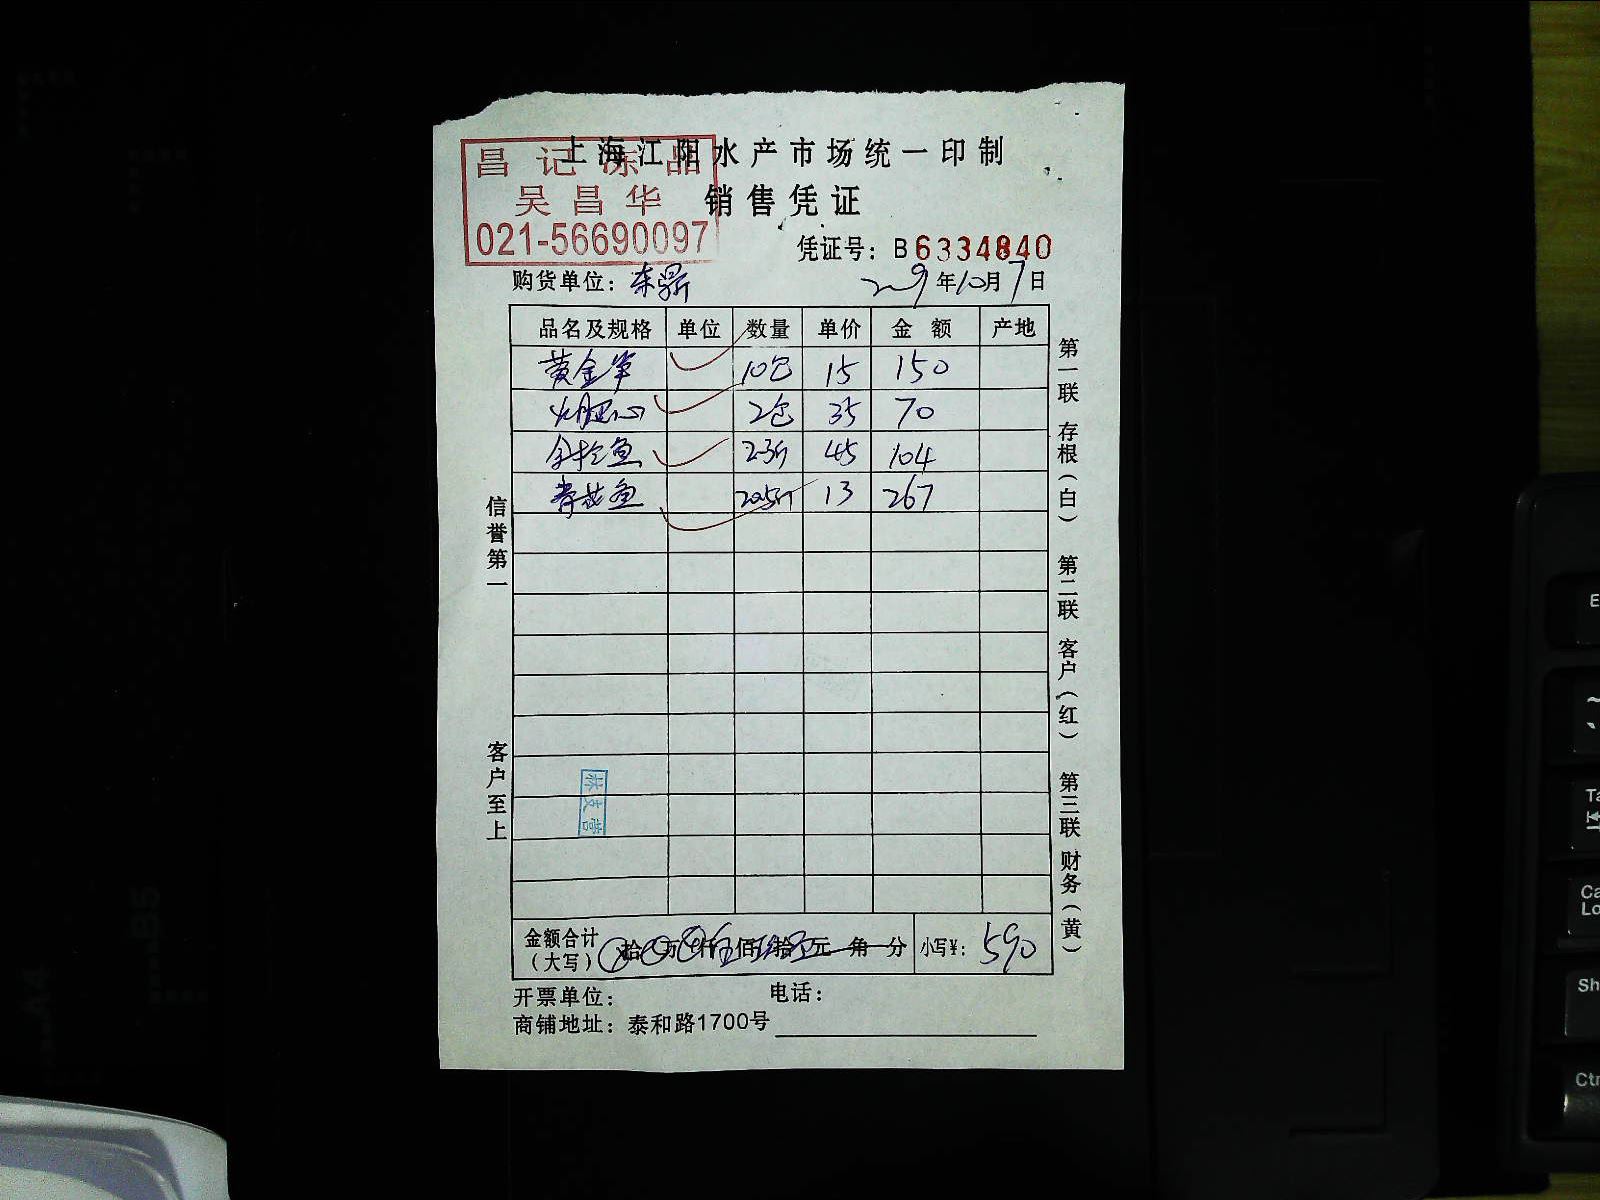 上海江阳水产市场统一印制
昌记冻品
吴昌华
021-56690097
销售凭证
凭证号：B6334840
购货单位：东鼎
2019年10月7日
品名及规格 单位 数量 单价 金额 产地
黄金笋 10包 15 150
2包 35 70
金枪鱼 2.3斤 45 104
青花鱼 20.5斤 13 267
信誉第一
客户至上
第一联 存根（白） 第二联 客户（红） 第三联 财务（黄）
金额合计（大写） 拾 万 仟 佰 拾 元 角 分 小写¥：590
开票单位： 电话：
商铺地址：泰和路1700号
B5
A4